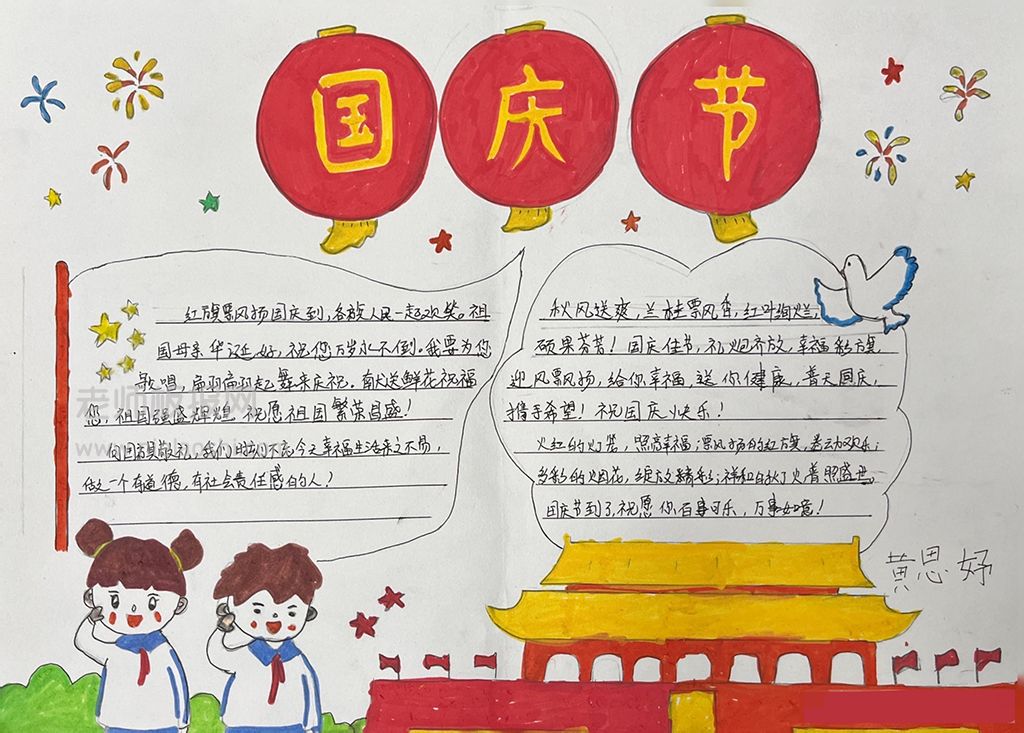 国庆节
红旗飘飘扬国庆到,各族人民一起欢笑。祖
国母亲华诞好,祝您万岁永不倒。我要为你
歌唱,起舞来庆祝。送鲜花祝福
您,祖国强盛辉煌 祝愿祖国繁荣昌盛!
向国旗敬礼,我们时刻不忘今天幸福生活来之不易,
做一个有道德,有社会责任感的人!
秋风送爽,兰桂飘香,红叶绚烂,
硕果芬芳!国庆佳节,礼炮齐放,幸福彩旗
迎风飘扬,给你幸福,送你健康,普天同庆,
携手希望!祝国庆快乐!
火红的灯笼,照亮幸福;飘扬的红旗,舞动欢乐;
多彩的烟花,绽放精彩;祥和的秋火普照盛世。
国庆节到了,祝愿你百事可乐,万事如意!
黄思妤
老师板报网